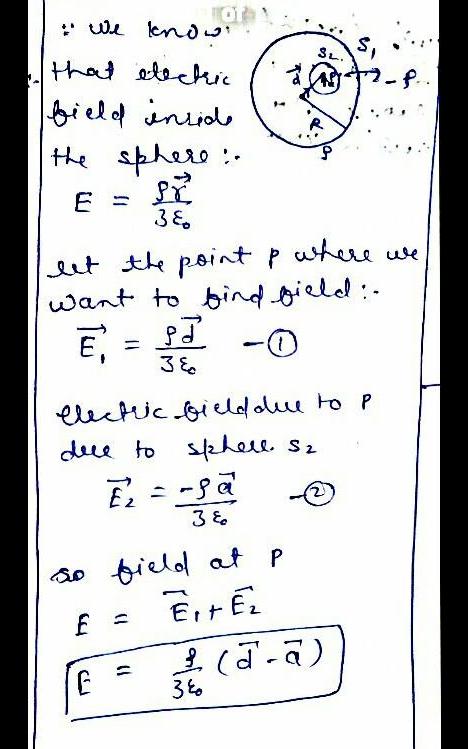 ∵ we know
that electric
field inside
the sphere :-
E = ρr⃗ / 3ε₀
S₁
S₂
d⃗
-ρ
R
ρ
let the point P where we
want to find field :-
E⃗₁ = ρd⃗ / 3ε₀ —①
electric field due to P
due to sphere S₂
E⃗₂ = -ρa⃗ / 3ε₀ —②
so field at P
E = E⃗₁ + E⃗₂
E = ρ / 3ε₀ (d⃗ - a⃗)